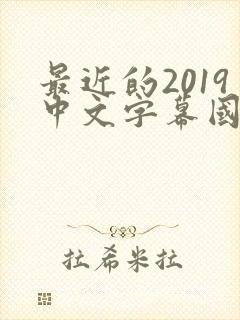 最近的2019
中文字幕國
拉希米拉